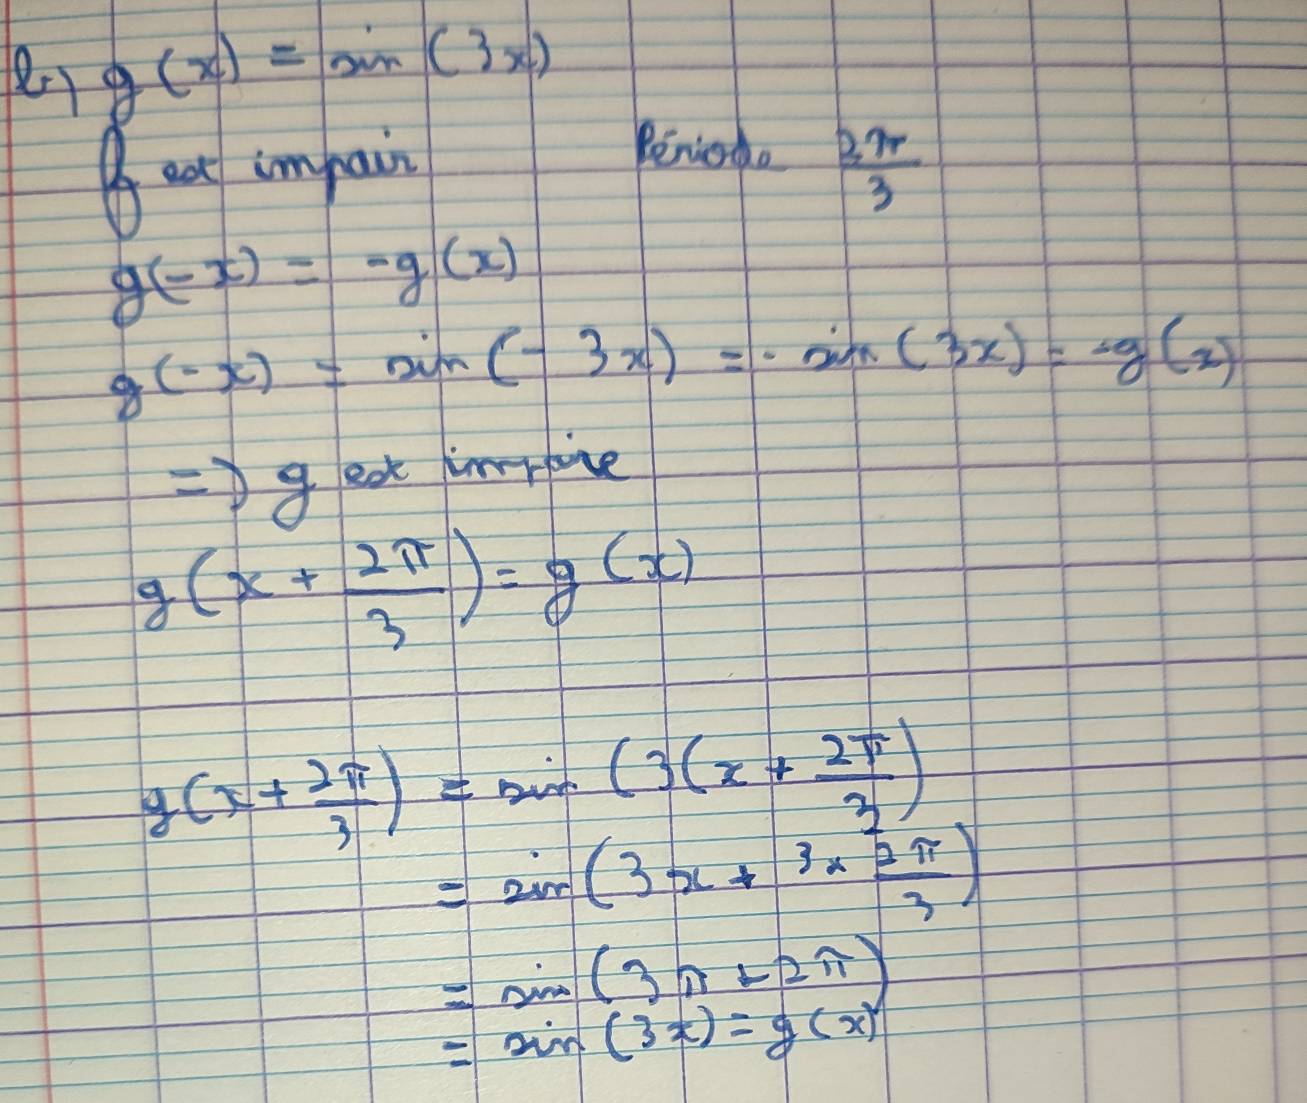 b) g(x) = sin (3x)
f est impair Période 2π/3
g(-x) = -g(x)
g(-x) = sin(-3x) = - sin(3x) = -g(x)
=> g est impaire
g(x + 2π/3) = g(x)
g(x + 2π/3) = sin (3(x + 2π/3)
= sin(3x + 3 × 2π/3)
= sin(3π + 2π)
= sin(3x) = g(x)